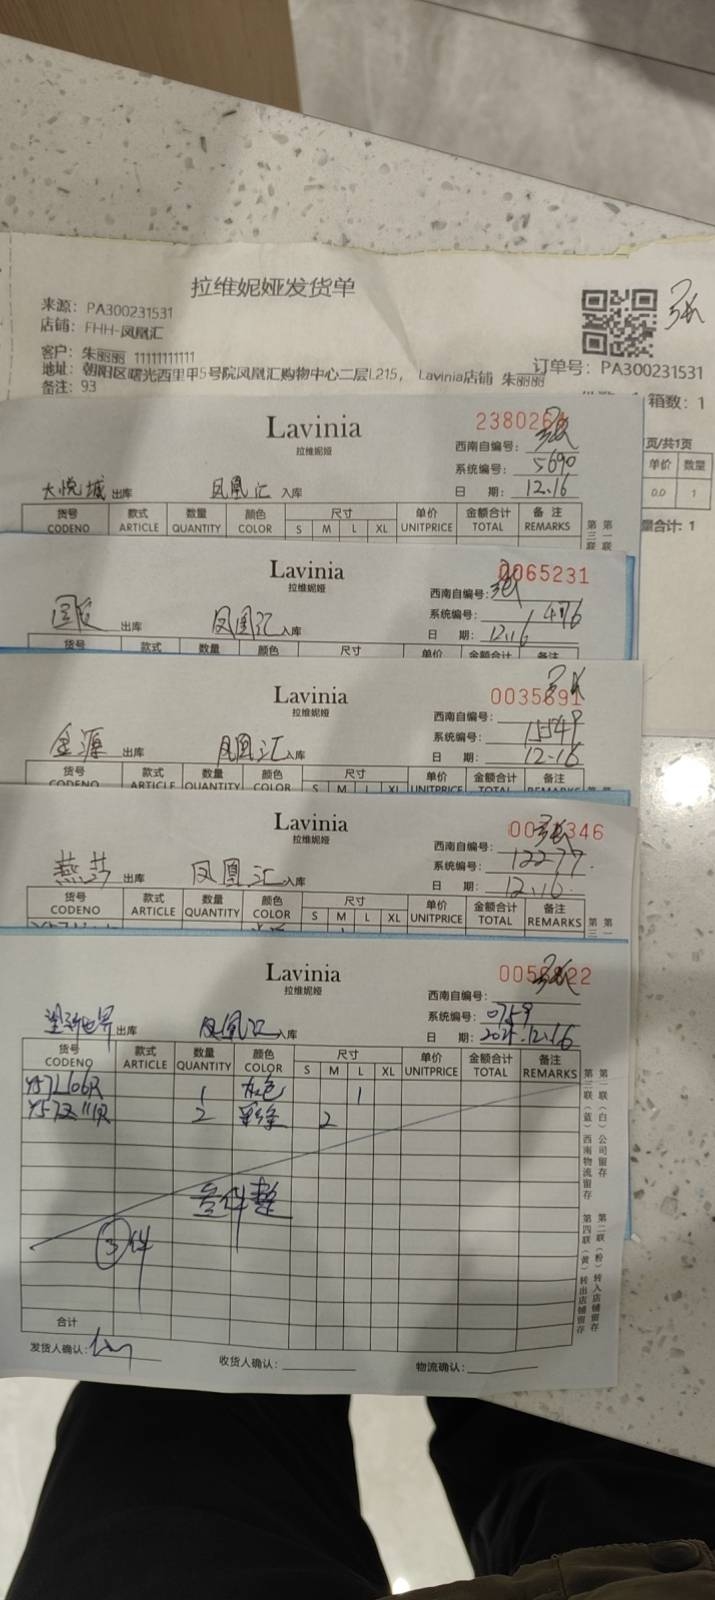 拉维妮娅发货单
来源：PA300231531
店铺：FHH-凤凰汇
客户：朱丽丽 11111111111
地址：朝阳区曙光西里甲5号院凤凰汇购物中心二层L215， Lavinia店铺 朱丽丽
备注：93
订单号：PA300231531
箱数：1
页/共1页
单价 数量
0.0 1
量合计：1
Lavinia
拉维妮娅
238026
西南自编号：
系统编号：5690
日 期：12.16
大悦城 出库 凤凰汇 入库
货号 款式 数量 颜色 尺寸 单价 金额合计 备注
CODENO ARTICLE QUANTITY COLOR S M L XL UNITPRICE TOTAL REMARKS
Lavinia
拉维妮娅
0065231
西南自编号：
系统编号：1476
日 期：12.16
出库 凤凰汇 入库
货号 款式 数量 颜色 尺寸 单价 金额合计 备注
Lavinia
拉维妮娅
0035691
西南自编号：
系统编号：15549
日 期：12.16
金源 出库 凤凰汇 入库
货号 款式 数量 颜色 尺寸 单价 金额合计 备注
CODENO ARTICLE QUANTITY COLOR S M L XL UNITPRICE TOTAL REMARKS
Lavinia
拉维妮娅
346
西南自编号：
系统编号：12277
日 期：12.16
燕莎 出库 凤凰汇 入库
货号 款式 数量 颜色 尺寸 单价 金额合计 备注
CODENO ARTICLE QUANTITY COLOR S M L XL UNITPRICE TOTAL REMARKS
Lavinia
拉维妮娅
西南自编号：
系统编号：0759
日 期：2025.12.16
出库 凤凰汇 入库
货号 款式 数量 颜色 尺寸 单价 金额合计 备注
CODENO ARTICLE QUANTITY COLOR S M L XL UNITPRICE TOTAL REMARKS
Y57L106R 1 灰色 1
Y57Z111R 2 彩条 2
叁件整
③件
合计
发货人确认： 收货人确认： 物流确认：
第一联（白）公司留存
第二联（粉）转入店铺留存
第三联（蓝）西南物流留存
第四联（黄）转出店铺留存